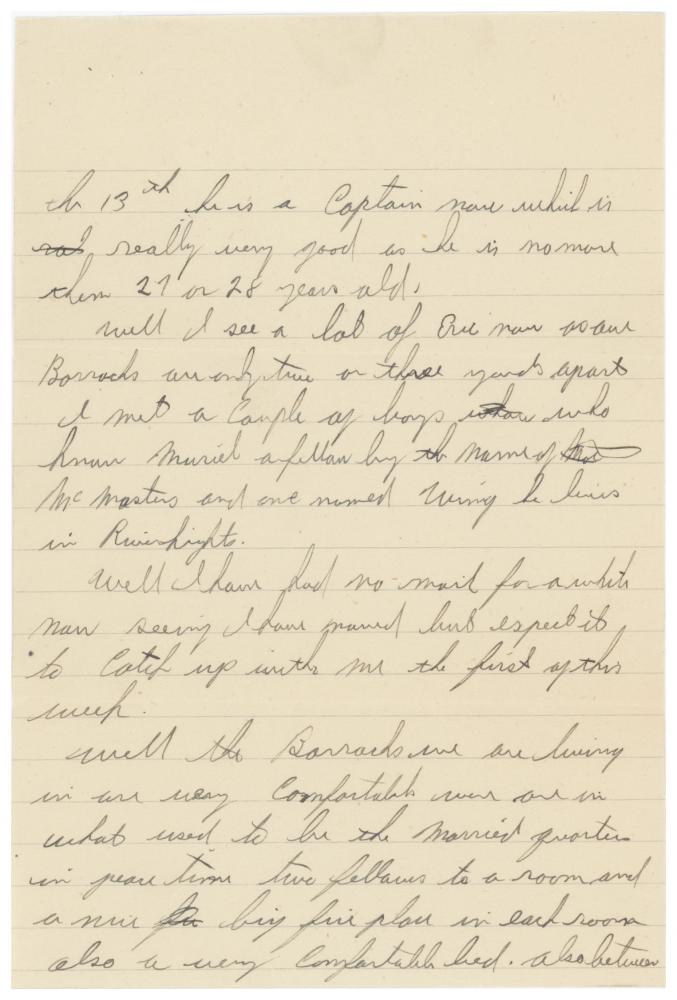 the 13th he is a Captain now which is
really very good as he is no more
then 27 or 28 years old.
Well I see a lot of Eric now as our
Barrachs are only two or three yards apart
I met a Couple of boys who
know Muriel a fellow by the name of
McMasters and one named Wing he lives
in Riverhights.
Well I have had no mail for a while
now seeing I have moved but expect it
to Catch up with me the first of this
week.
Well the Barrachs we are living
in are very Comfortable were are in
what used to be the Married quarters
in peace time two fellows to a room and
a nice big fire place in each room
also a very Comfortable bed. also between